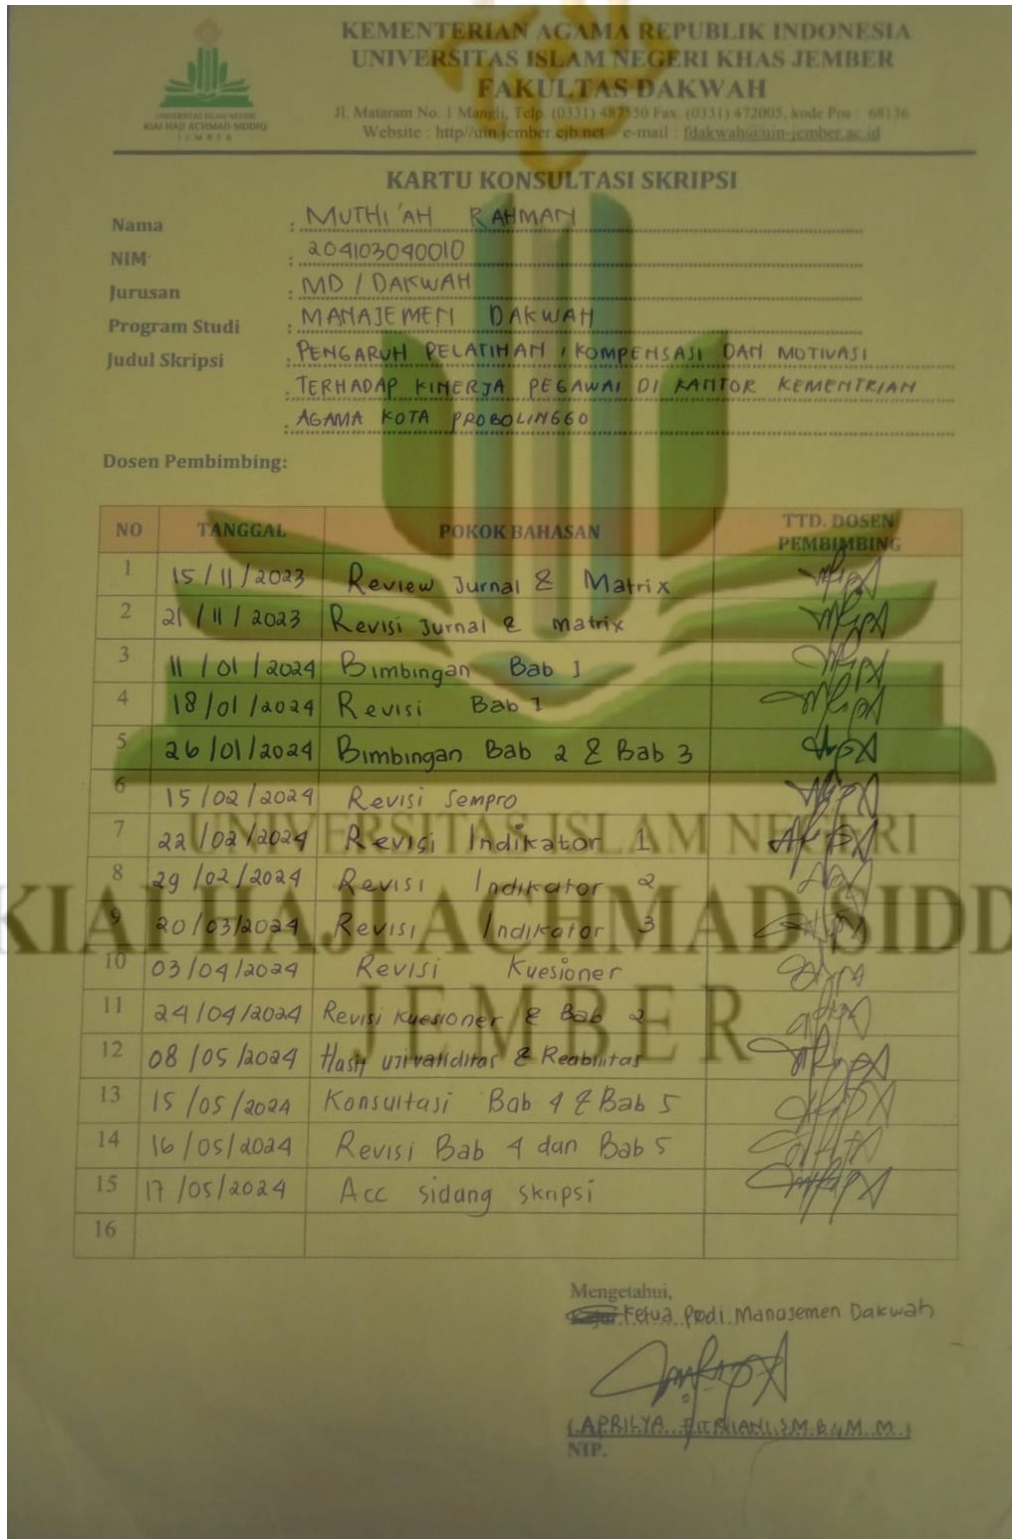 KEMENTERIAN AGAMA REPUBLIK INDONESIA
UNIVERSITAS ISLAM NEGERI KHAS JEMBER
FAKULTAS DAKWAH
Jl. Mataram No. 1 Mangli, Telp. (0331) 487550 Fax. (0331) 472005, kode Pos : 68136
Website : http//uin-jember.cjb.net e-mail : fdakwah@uin-jember.ac.id
UNIVERSITAS ISLAM NEGERI
KIAI HAJI ACHMAD SIDDIQ
JEMBER
KARTU KONSULTASI SKRIPSI
Nama : MUTHI'AH RAHMAN
NIM : 204103040010
Jurusan : MD / DAKWAH
Program Studi : MANAJEMEN DAKWAH
Judul Skripsi : PENGARUH PELATIHAN, KOMPENSASI DAN MOTIVASI
: TERHADAP KINERJA PEGAWAI DI KANTOR KEMENTRIAN
: AGAMA KOTA PROBOLINGGO
Dosen Pembimbing:
NO TANGGAL POKOK BAHASAN TTD. DOSEN PEMBIMBING
1 15/11/2023 Review Jurnal & Matrix
2 21/11/2023 Revisi Jurnal & Matrix
3 11/01/2024 Bimbingan Bab 1
4 18/01/2024 Revisi Bab 1
5 26/01/2024 Bimbingan Bab 2 & Bab 3
6 15/02/2024 Revisi Sempro
7 22/02/2024 Revisi Indikator 1
8 29/02/2024 Revisi Indikator 2
9 20/03/2024 Revisi Indikator 3
10 03/04/2024 Revisi Kuesioner
11 24/04/2024 Revisi Kuesioner & Bab 2
12 08/05/2024 Hasil uji validitas & Reabilitas
13 15/05/2024 Konsultasi Bab 4 & Bab 5
14 16/05/2024 Revisi Bab 4 dan Bab 5
15 17/05/2024 Acc sidang skripsi
16
UNIVERSITAS ISLAM NEGERI
KIAI HAJI ACHMAD SIDD
JEMBER
Mengetahui,
Ketua Prodi Manajemen Dakwah
(APRILYA FITRIANI, S.M.B., M.M.)
NIP.